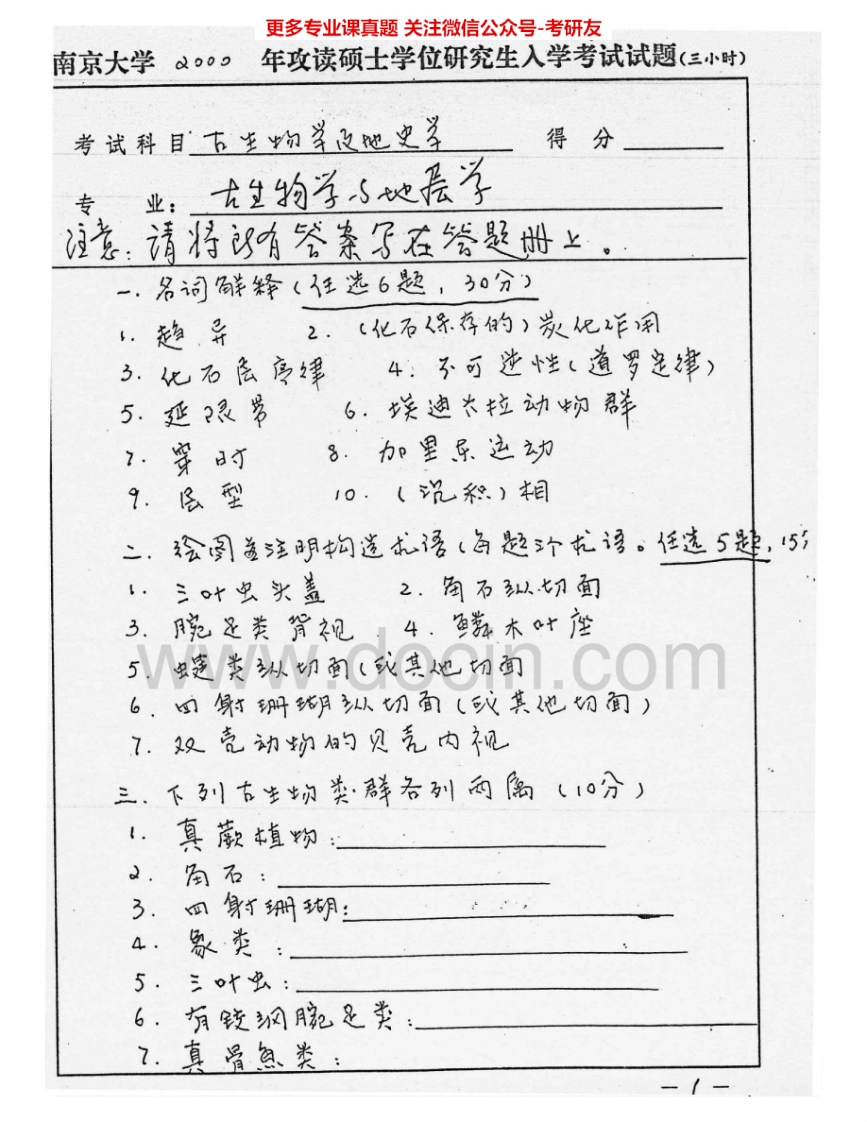 更多专业课真题 关注微信公众号-考研友
南京大学 2000 年攻读硕士学位研究生入学考试试题(三小时)
考试科目 古生物学及地史学 得分
专业: 古生物学与地层学
注意: 请将所有答案写在答题册上。
一. 名词解释(任选6题, 30分)
1. 趋异 2. (化石保存的)炭化作用
3. 化石层序律 4. 不可逆性(道罗定律)
5. 延限带 6. 埃迪卡拉动物群
7. 穿时 8. 加里东运动
9. 层型 10. (沉积)相
二. 绘图并注明构造术语(每题3个术语。任选5题, 15分
1. 三叶虫头盖 2. 角石纵切面
3. 腕足类背视 4. 鳞木叶座
5. 蜓类纵切面(或其他切面
6. 四射珊瑚纵切面(或其他切面)
7. 双壳动物的贝壳内视
www.docin.com
三. 下列古生物类群各列两属(10分)
1. 真蕨植物:
2. 角石:
3. 四射珊瑚:
4. 象类:
5. 三叶虫:
6. 有铰纲腕足类:
7. 真骨魚类:
-1-